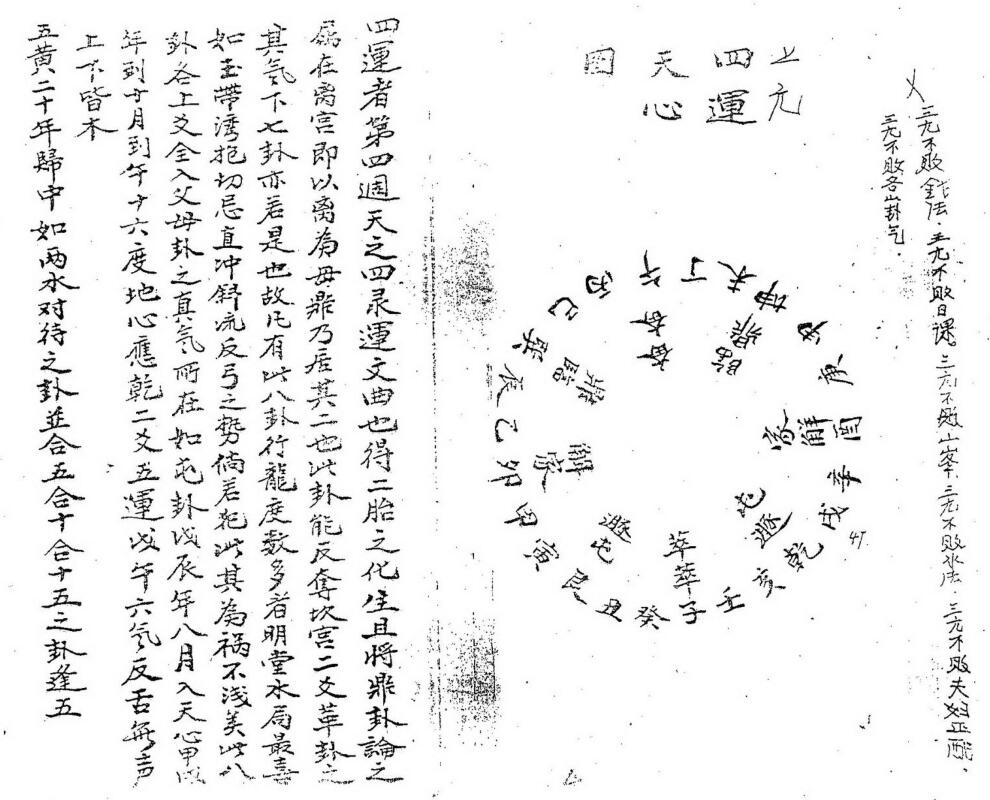 三元不敗錯法．三元不敗日課．三元不敗山峯．三元不敗水法．三元不敗夫妇正配．
三元不敗各山卦气．
上元
四運
天心
图
丙午丁未坤申庚酉辛戌乾亥壬子癸丑艮寅甲卯乙辰巽巳
畜畜
鼎臨
解家
屯遯
萃萃
遯屯
解家
鼎臨
47
四運者第四週天之四录運文曲也得二胎之化生且將鼎卦論之
屬在离宮即以离為母鼎乃居其二也此卦能反奪坎宮二爻革卦之
其気下七卦亦若是也故凡有此八卦行龍度数多者明堂水局最喜
如玉带湾抱切忌直冲斜流反弓之势倘若犯此其為祸不浅美此八
卦各上爻全入父母卦之真気所在如屯卦戊辰年八月入天心甲
年到廿月到午十六度地心應乾二爻五運戊午六気反舌無声
上下皆木
五黃二十年歸中如两水对待之卦並合五合十合十五之卦逢五